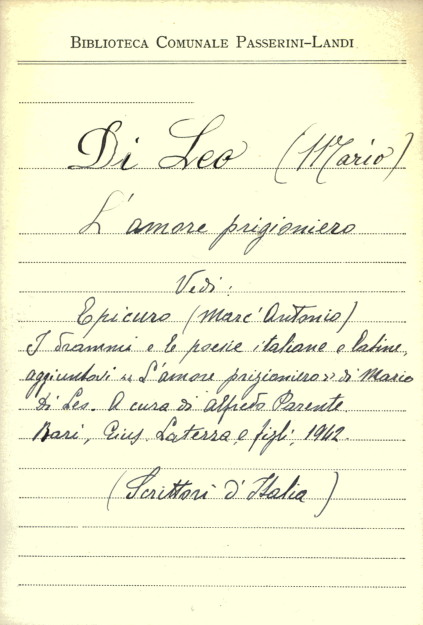 BIBLIOTECA COMUNALE PASSERINI-LANDI
Di Leo (Mario)
L'amore prigioniero
Vedi:
Epicuro (Marc'Antonio)
I drammi e le poesie italiane e latine,
aggiuntovi «L'amore prigioniero» di Mario
Di Leo. A cura di Alfredo Parente
Bari, Gius. Laterza e figli, 1942.
(Scrittori d'Italia)